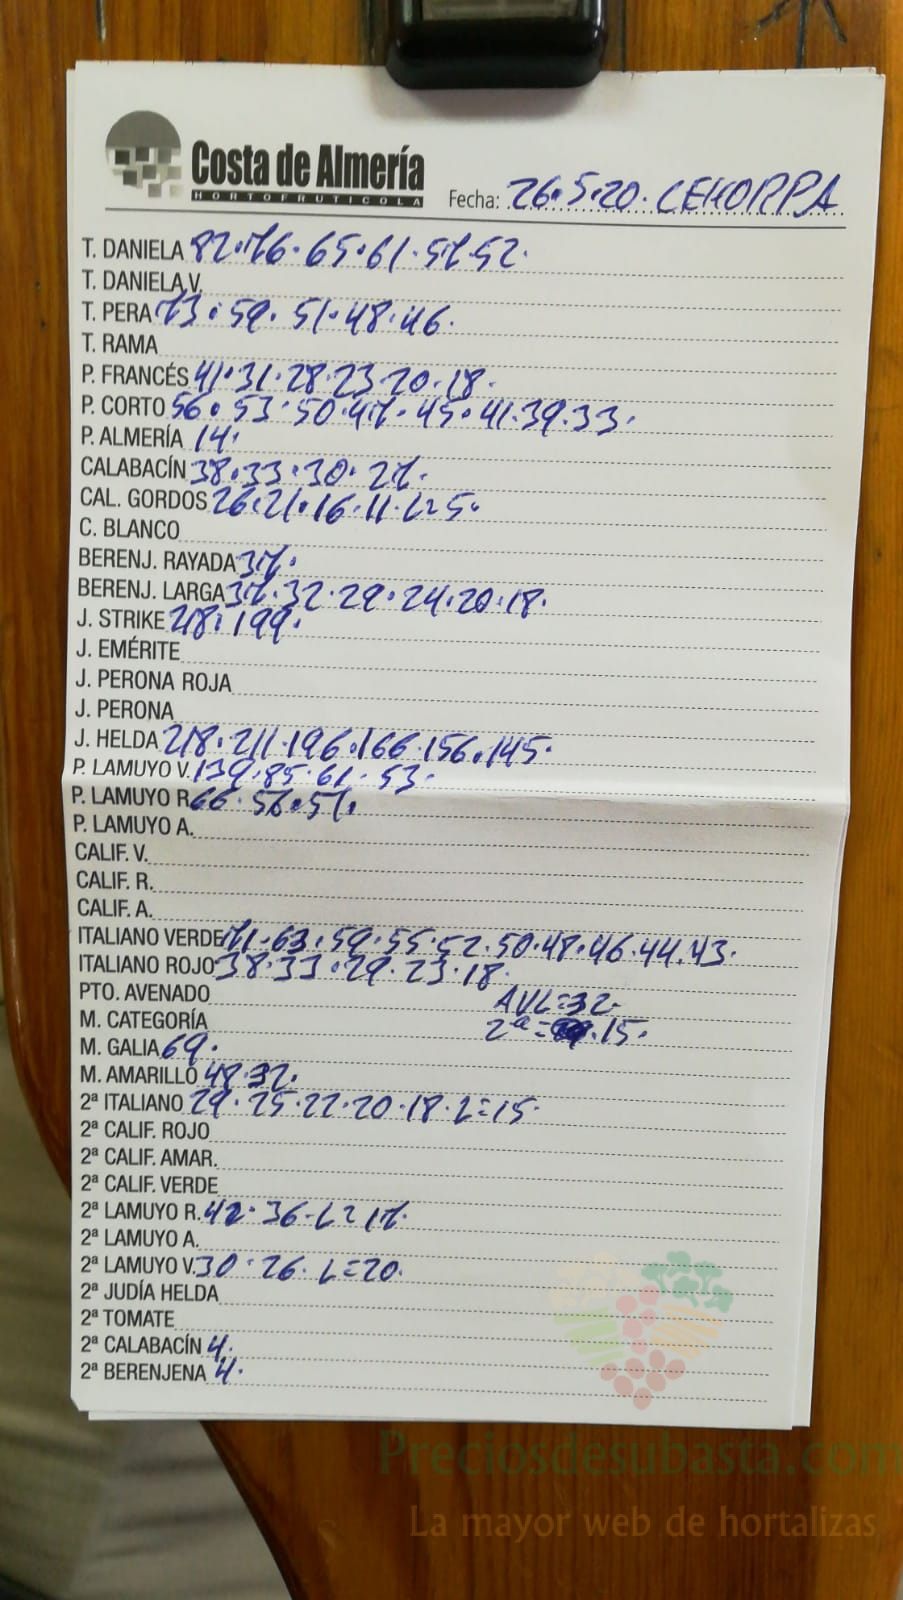 Costa de Almería
HORTOFRUTICOLA
Fecha: 26.5.20. CEHORPA
T. DANIELA 82.76.65.61.57.52.
T. DANELA V.
T. PERA 73.59.51.48.46.
T. RAMA
P. FRANCÉS 41.31.28.23.20.18.
P. CORTO 56.53.50.47.45.41.39.33.
P. ALMERÍA 14.
CALABACÍN 38.33.30.27.
CAL. GORDOS 26.21.16.11.L=5.
C. BLANCO
BERENJ. RAYADA 37.
BERENJ. LARGA 37.32.29.24.20.18.
J. STRIKE 218.199.
J. EMÉRITE
J. PERONA ROJA
J. PERONA
J. HELDA 218.211.196.166.156.145.
P. LAMUYO V. 139.85.61.53.
P. LAMUYO R. 66.56.51.
P. LAMUYO A.
CALIF. V.
CALIF. R.
CALIF. A.
ITALIANO VERDE 71.63.59.55.52.50.48.46.44.43.
ITALIANO ROJO 38.33.29.23.18.
PTO. AVENADO AVL=32.
M. CATEGORÍA 2ª= .15.
M. GALIA 69.
M. AMARILLO 48.32.
2ª ITALIANO 29.25.22.20.18.L=15.
2ª CALIF. ROJO
2ª CALIF. AMAR.
2ª CALIF. VERDE
2ª LAMUYO R. 42.36.L=17.
2ª LAMUYO A.
2ª LAMUYO V. 30.26.L=20.
2ª JUDÍA HELDA
2ª TOMATE
2ª CALABACÍN 4.
2ª BERENJENA 4.
Preciosdesubasta.com
La mayor web de hortalizas